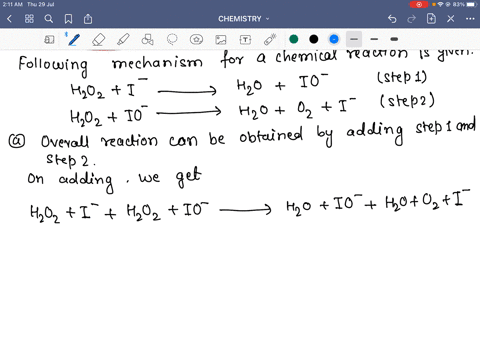 2:11 AM Thu 29 Jul
83%
CHEMISTRY
Following mechanism for a chemical reaction is given.
H₂O₂ + I⁻ ⟶ H₂O + IO⁻ (Step 1)
H₂O₂ + IO⁻ ⟶ H₂O + O₂ + I⁻ (Step 2)
ⓐ Overall reaction can be obtained by adding step 1 and
step 2.
On adding, we get
H₂O₂ + I⁻ + H₂O₂ + IO⁻ ⟶ H₂O + IO⁻ + H₂O + O₂ + I⁻